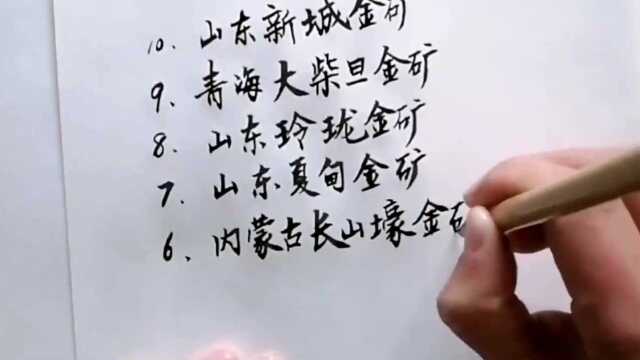 10、山东新城金矿
9、青海大柴旦金矿
8、山东玲珑金矿
7、山东夏甸金矿
6、内蒙古长山壕金矿